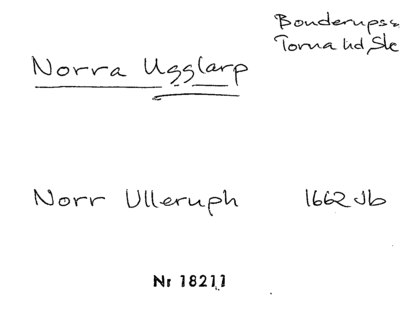 Bonderups s
Torna hd, Sk
Norra Ugglarp
Norr Ulleruph 1662 Jb
Nr 18211